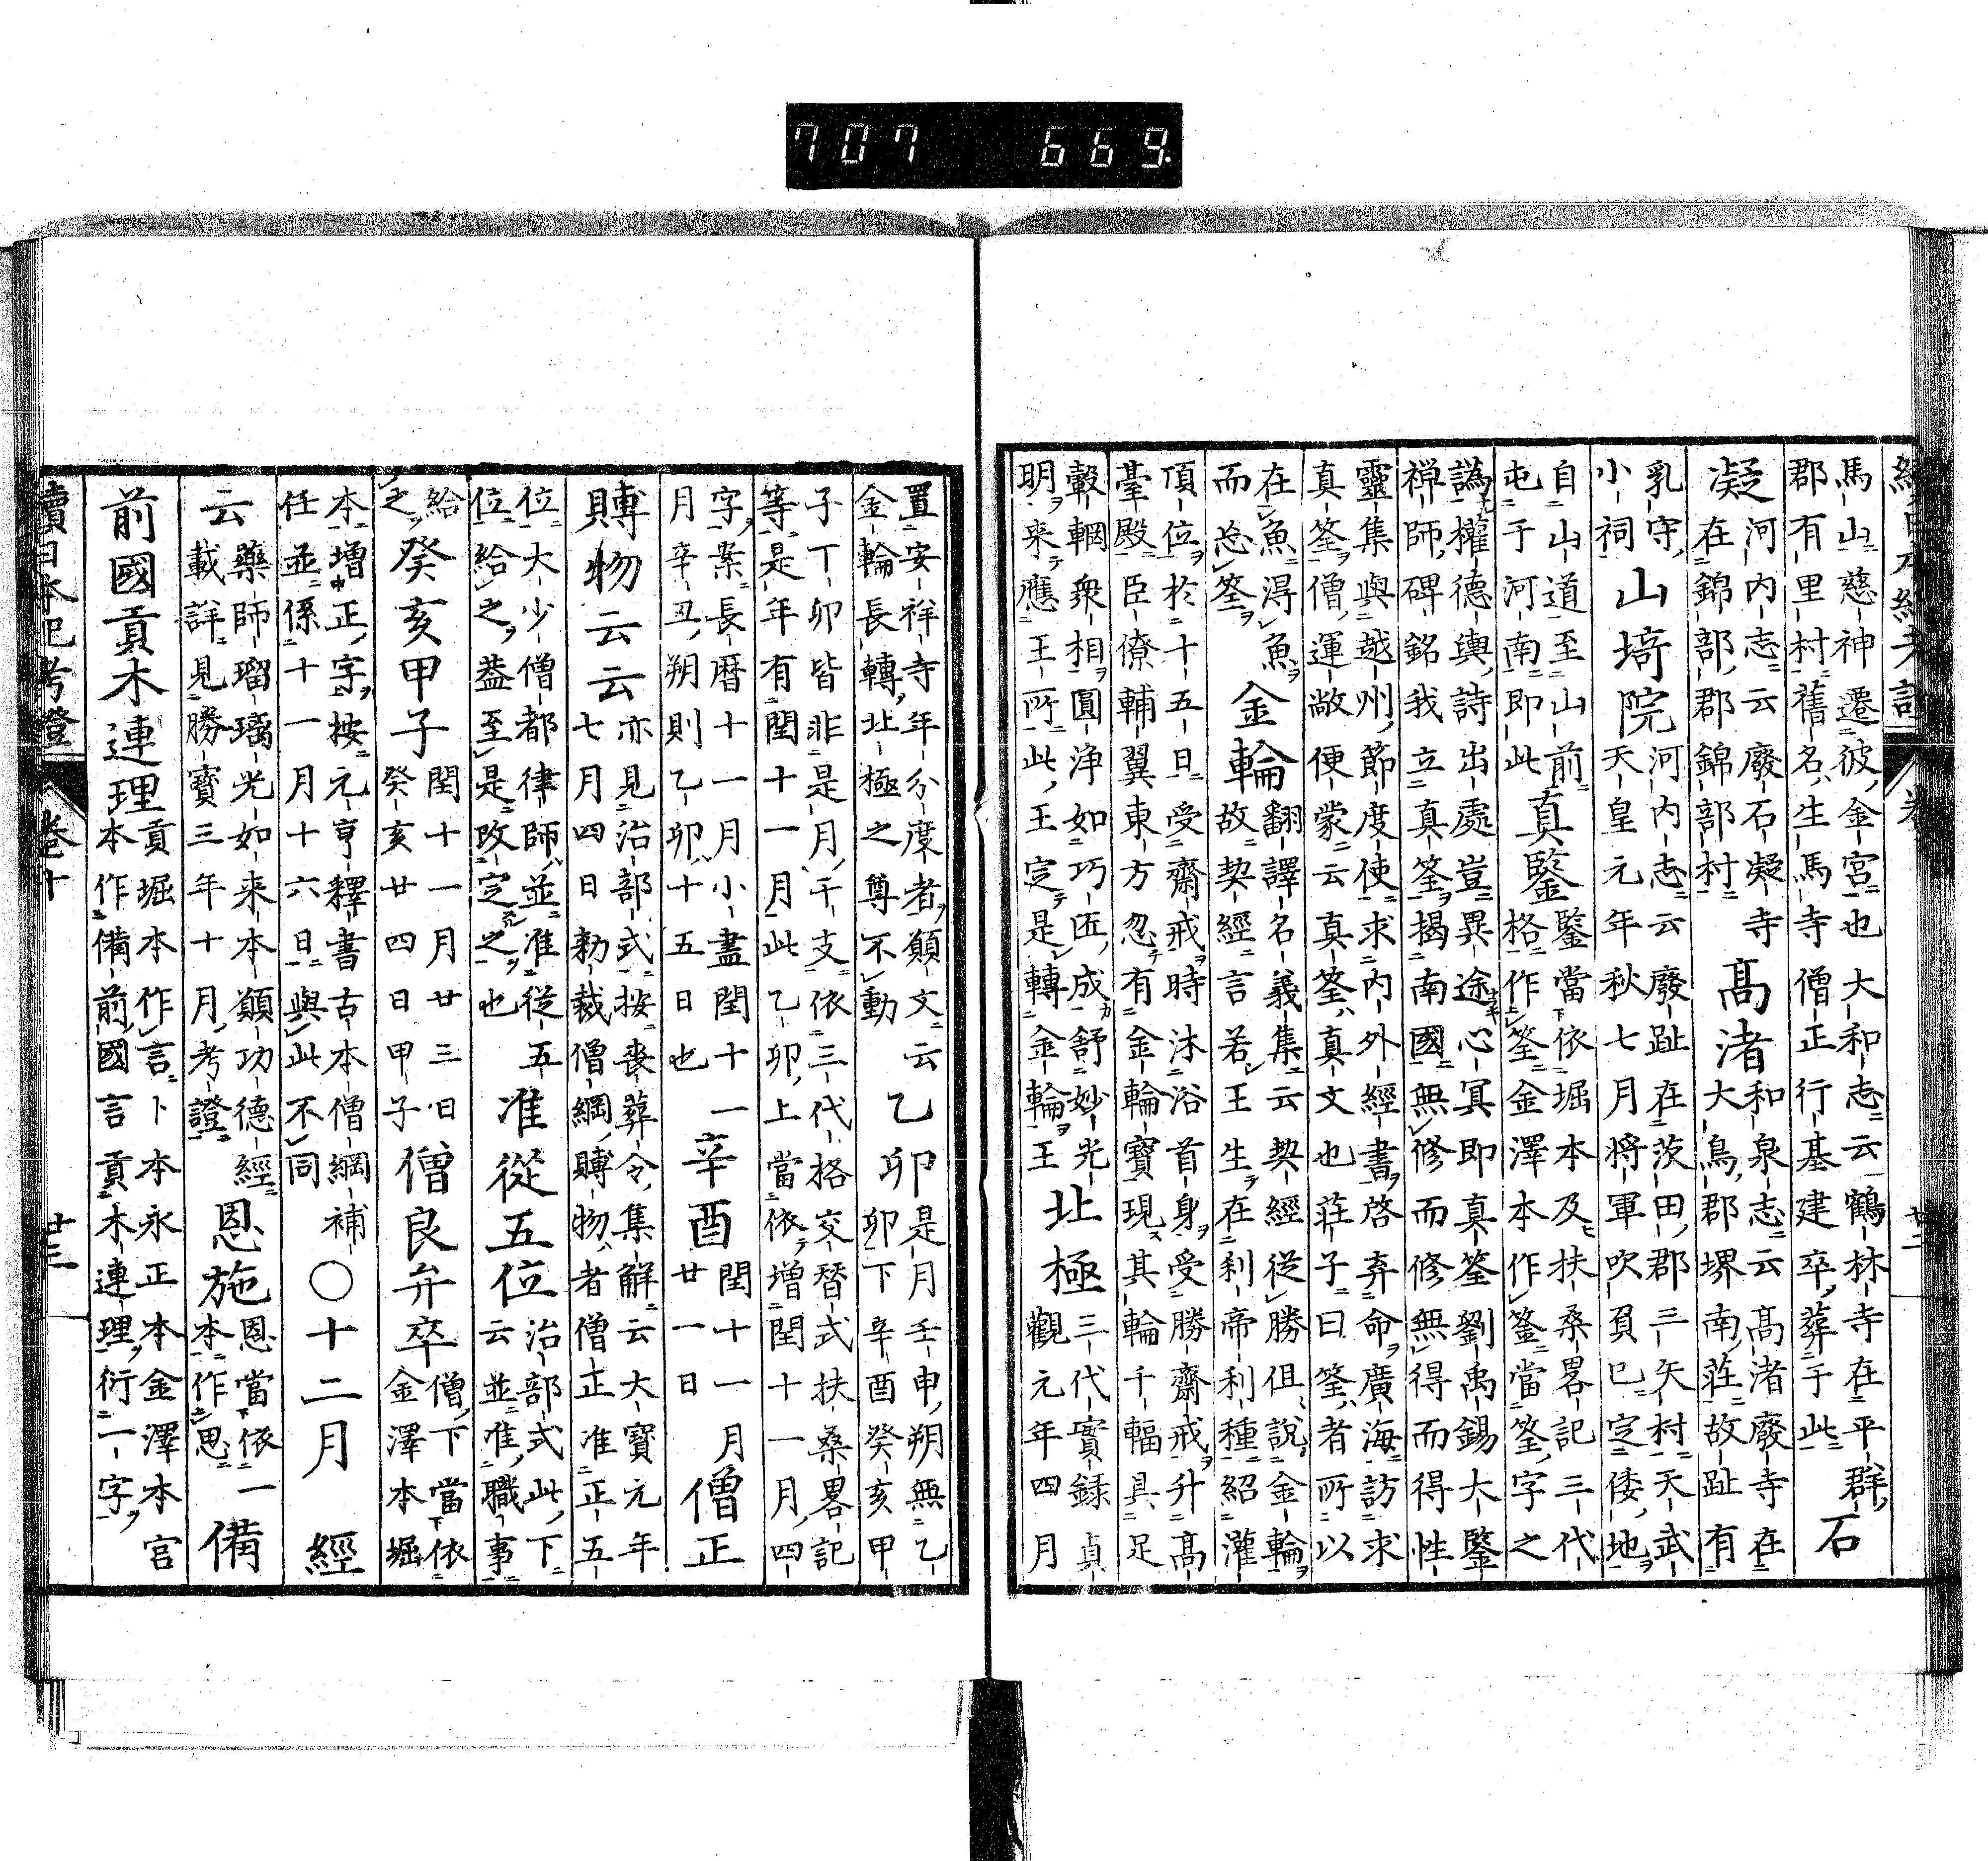 馬山慈神遷彼金宮也大和志云鶴林寺在平群
郡有里村舊名生馬寺僧正行基建卒葬于此
石
凝
河内志云廢石凝寺
在錦部郡錦部村
高渚
和泉志云高渚廢寺在
大鳥郡堺南荘故趾有
乳守
小祠
山埼院
河内志云廢趾在茨田郡三矢村天武
天皇元年秋七月将軍吹負已定倭地
自山道至山前
屯于河南即此
真鑒
鑒當依堀本及扶桑畧記三代
格作筌金澤本作筌當筌字之
譌權德輿詩出處豈異途心冥即真筌劉禹錫大鑒
禅師碑銘我立真筌揭南國無修而修無得而得性
靈集與越州節度使求内外經書啓弃命廣海訪求
真筌僧運敞便蒙云真筌真文也荘子曰筌者所以
在魚淂魚
而忘筌
金輪
翻譯名義集云契經從勝但說金輪
故契經言若王生在刹帝利種紹灌
頂位於十五日受齋戒時沐浴首身受勝齋戒升高
臺殿臣僚輔翼東方忽有金輪寶現其輪千輻具足
轂輞衆相圓浄如巧匠成舒妙光
明来應王所此王定是轉金輪王
北極
三代實録貞
觀元年四月
置安祥寺年分度者願文云
金輪長轉北極之尊不動
乙卯
是月壬申朔無乙
卯下辛酉癸亥甲
子丁卯皆非是月干支依三代格交替式扶桑畧記
等是年有閏十一月此乙卯上當依增閏十一月四
字案長暦十一月小盡閏十一
月辛丑朔則乙卯十五日也
辛酉
閏十一月
廿一日
僧正
賻物云云
亦見治部式按喪葬令集解云大寳元年
七月四日勅裁僧綱賻物者僧正准正五
位大少僧都律師並准從五
位給之蓋至是改定之也
准從五位
治部式此下
云並准職事
給
之
癸亥甲子
閏十一月廿三日
癸亥廿四日甲子
僧良弁卒
僧下當依
金澤本堀
本增正字按元亨釋書古本僧綱補
任並係十一月十六日與此不同
〇十二月
經
云
藥師瑠璃光如来本願功德經
載詳見勝寳三年十月考證
恩施
恩當依一
本作思
備
前國貢木連理
貢堀本作言卜本永正本金澤本宮
本作備前國言貢木連理衍二字
續日本紀考證
卷十
廿三